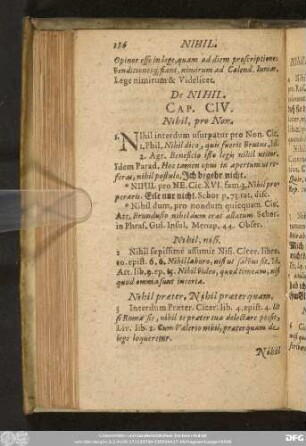 126 NIHIL.
Opinor esse in lege, quam ad diem proscriptiones
venditionesq; fiant, nimirum ad Calend. Iunias.
Lege nimirum & Videlicet.
De NIHIL
CAP. CIV.
Nihil, pro Non.
1. NIhil interdum usurpatur pro Non. Cic.
1. Phil. Nihil dico, quis fuerit Brutus. Id.
2. Agr. Beneficio isto legis nihil utitur.
Idem Parad. Hoc tamen opus in apertum ut re-
feras, nihil postulo, Ich begehr nicht.
* NIHIL pro NE. Cic. XVI. fam. 3. Nihil pro-
peraris. Eile nur nicht. Schor p. 73. tat. disc.
* Nihil dum, pro nondum quicquam Cic.
Att. Brundusio nihildum erat allatum Schor.
in Phras. Gui. Insul. Menap. 44. Obser.
Nihil, nisi.
2 Nihil sæpissimè assumit Nisi. Cicer. liber.
10. epist. 6. 6. Nihil laboro, nisi ut salvus sis. Id.
Att. lib. 9. ep. Nihil video, quod timeam, nisi
quod omnia sunt incerta.
Nihil præter, Nihil præterquam.
3 Interdum Præter. Cicer. lib. 4. epist. 4.
si Romæ sis, nihil te præter tua delectare posse,
Liv. lib. 2. Cum Valerio nihil, præterquam de
lege loqueretur.
Nihil